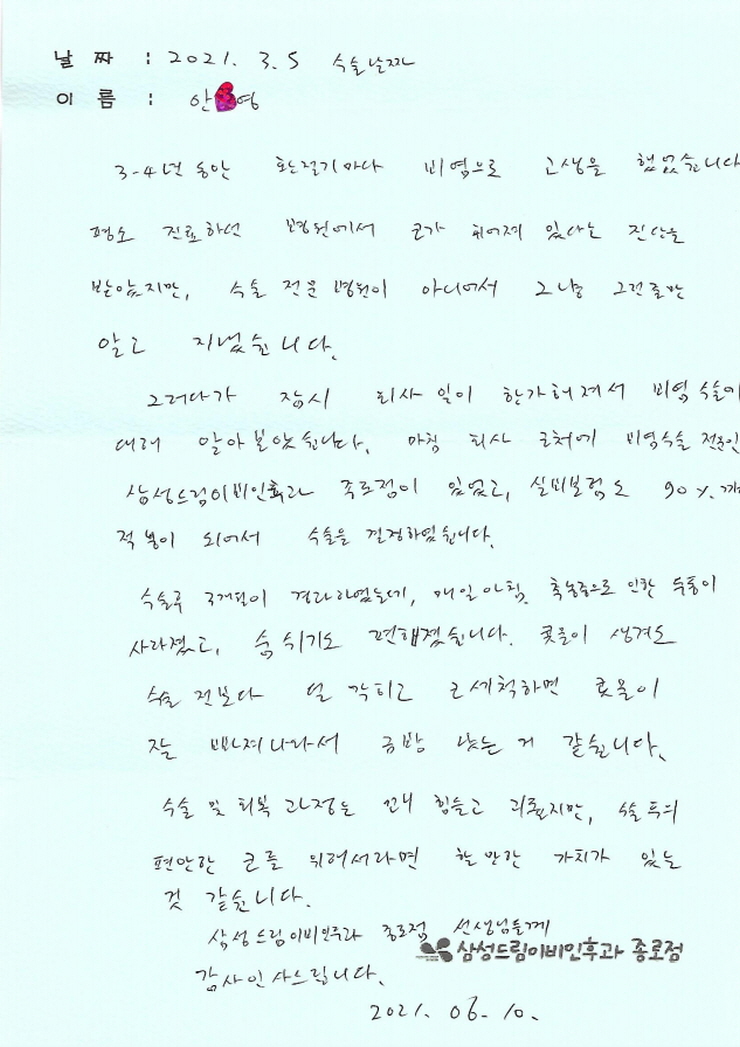 날 짜 : 2021. 3.5 수술날짜
이 름 : 안 영
3-4년 동안 환절기마다 비염으로 고생을 했었습니다
평소 진료하던 병원에서 코가 휘어져 있다는 진단을
받았지만, 수술 전문 병원이 아니어서 그냥 그런줄만
알고 지냈습니다.
그러다가 잠시 회사 일이 한가해져서 비염 수술에
대해 알아보았습니다. 마침 회사 근처에 비염수술 전문인
삼성드림이비인후과 종로점이 있었고, 실비보험도 90%까
적용이 되어서 수술을 결정하였습니다.
수술후 3개월이 경과하였는데, 매일아침 축농증으로 인한 두통이
사라졌고, 숨쉬기도 편해졌습니다. 콧물이 생겨도
수술 전보다 덜 막히고 코세척하면 콧물이
잘 빠져나와서 금방 낫는 거 같습니다.
수술 및 회복 과정은 꽤 힘들고 괴롭지만, 수술 후의
편안한 코를 위해서라면 할만한 가치가 있는
것 같습니다.
삼성드림이비인후과 종로점 선생님들께
삼성드림이비인후과 종로점
감사인사드립니다.
2021. 06. 10.